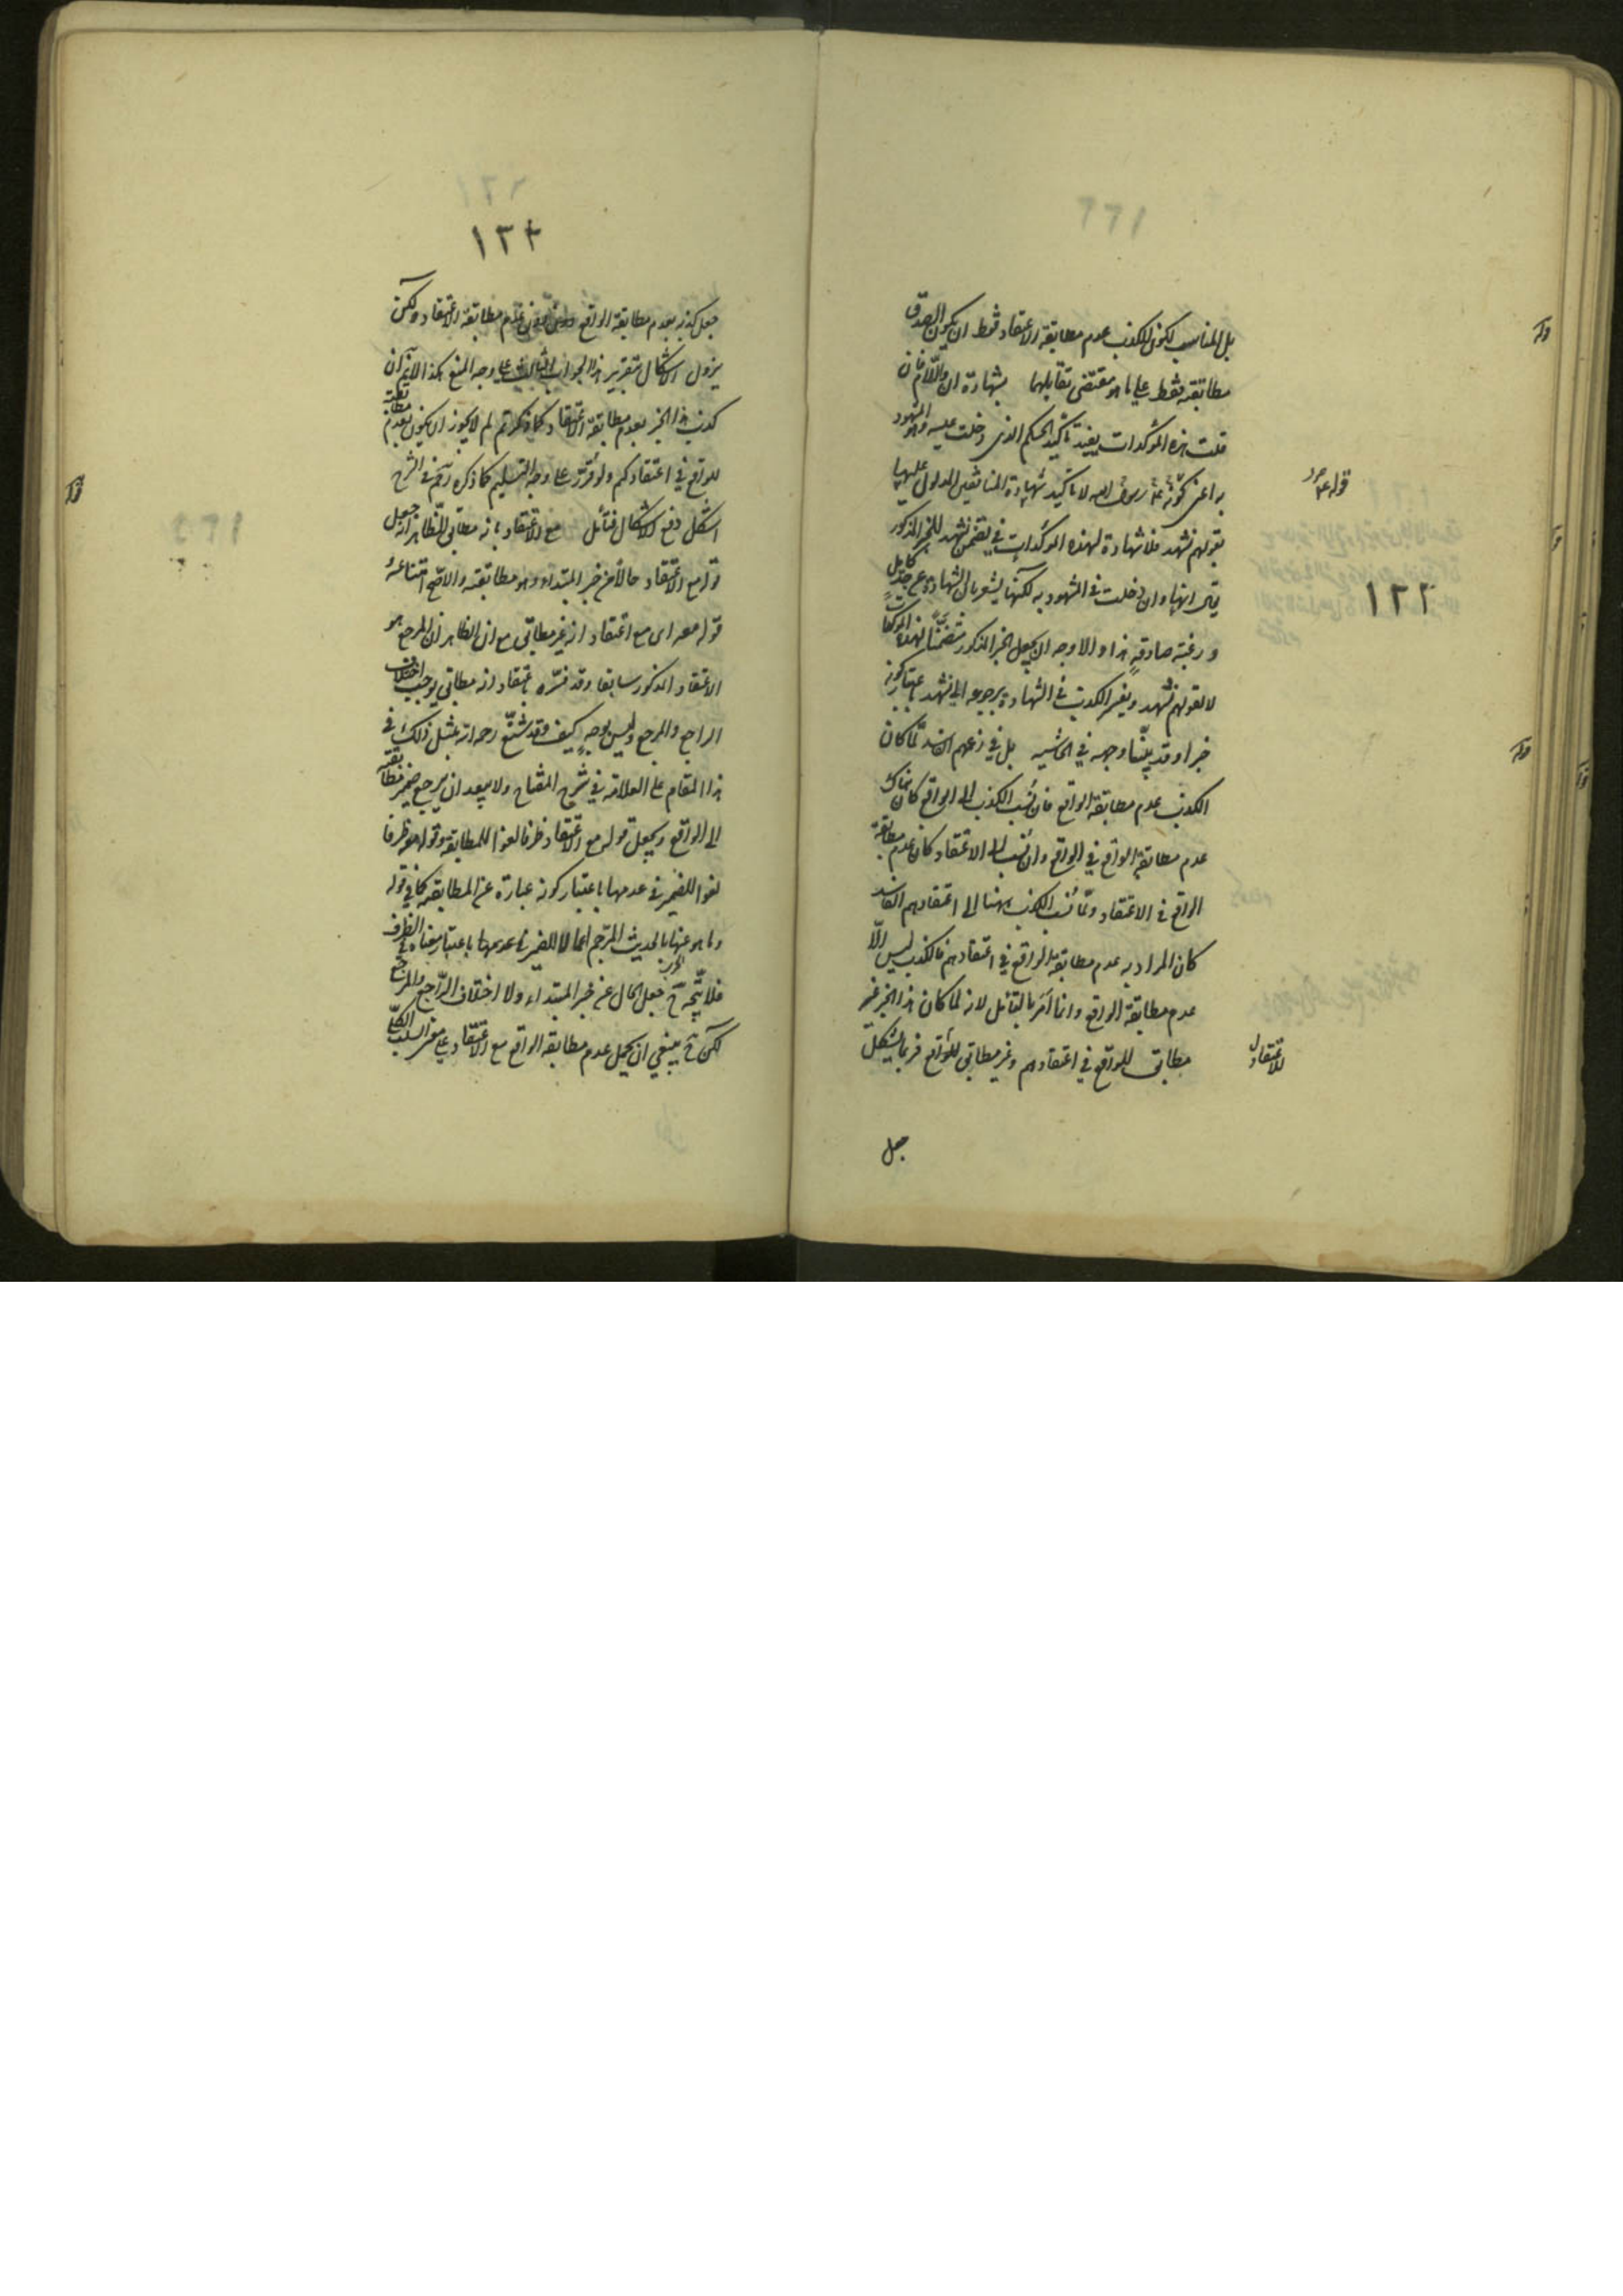 بل المناسب لكون الكذب عدم مطابقة الاعتقاد فقط ان يكون الصدق
مطابقته فقط على ما هو مقتضى تقابلهما بشهادة ان واللام فان
قلت هذه المؤكدات يفيد تأكيد الحكم الذى دخلت عليه وهو المشهود
به اعنى كونه عم رسول الله لا تأكيد شهادة المنافقين المدلول عليها
بقولهم نشهد فلا شهادة لهذه المؤكدات في تضمن نشهد للخبر المذكور
انها وان دخلت في المشهود به لكنها يشعر بان الشهادة عن جد كامل
ورغبة صادقة هذا والاوجه ان يجعل الخبر المذكور متضمنا لهذه المؤكدات
لا لقولهم نشهد ويفسر الكذب في الشهادة برجوعه الى نشهد باعتبار كونه
خبرا وقد بينا وجهه في الحاشيه بل في زعمهم الفاسد لما كان
الكذب عدم مطابقة الواقع فان نسب الكذب الى الواقع كان هناك
عدم مطابقة الواقع في الواقع وان نسب الى الاعتقاد كان عدم مطابقة
الواقع في الاعتقاد ولما نسب الكذب ههنا الى اعتقادهم الفاسد
كان المراد به عدم مطابقة الواقع في اعتقادهم فالكذب ليس الا
عدم مطابقة الواقع وانما امر بالتأمل لانه لما كان هذا الخبر غير
مطابق للواقع في اعتقادهم وغير مطابق للواقع فربما يشكل
جعل
قوله
١٢٢
للاعتقاد
١٢٣
جعل كذبه بعدم مطابقة الواقع دون عدم مطابقة الاعتقاد ولكن
يزول الاشكال بتقرير هذا الجواب الثالث على وجه المنع هكذا لانم ان
كذب هذا الخبر بعدم مطابقة الاعتقاد كما ذكرتم لم لا يجوز ان يكون بعدم مطابقته
للواقع في اعتقادكم ولو قرر على وجه التسليم كما ذكره في الشرح
اشكل دفع الاشكال فتأمل مع الاعتقاد بانه مطابق الظاهر انه جعل
قوله مع الاعتقاد حالا من خبر المبتداء وهو مطابقته والاصح امتناعه
قوله معه اى مع اعتقاد انه غير مطابق مع ان الظاهر ان المرجع هو
الاعتقاد المذكور سابقا وقد فسره باعتقاد انه مطابق يوجب اختلاف
الراجع والمرجع وليس بوجه كيف وقد شنع رحمه الله بمثل ذلك في
هذا المقام على العلامة في شرح المفتاح ولا يبعد ان يرجع ضمير مطابقته
الى الواقع ويجعل قوله مع الاعتقاد ظرفا لغوا للمطابقة وقوله معه ظرفا
لغوا للضمير في عدمها باعتبار كونه عبارة عن المطابقة كما في قوله
وما هو عنها بالحديث المرجم اعمالا للضمير في عدمها باعتبار معناه في الظرف
فلا يتجه ح جعل الحال عن خبر المبتداء ولا اختلاف الراجع والمرجع
لكن ح ينبغي ان يحمل عدم مطابقة الواقع مع الاعتقاد على معنى السلب الكلي
قوله